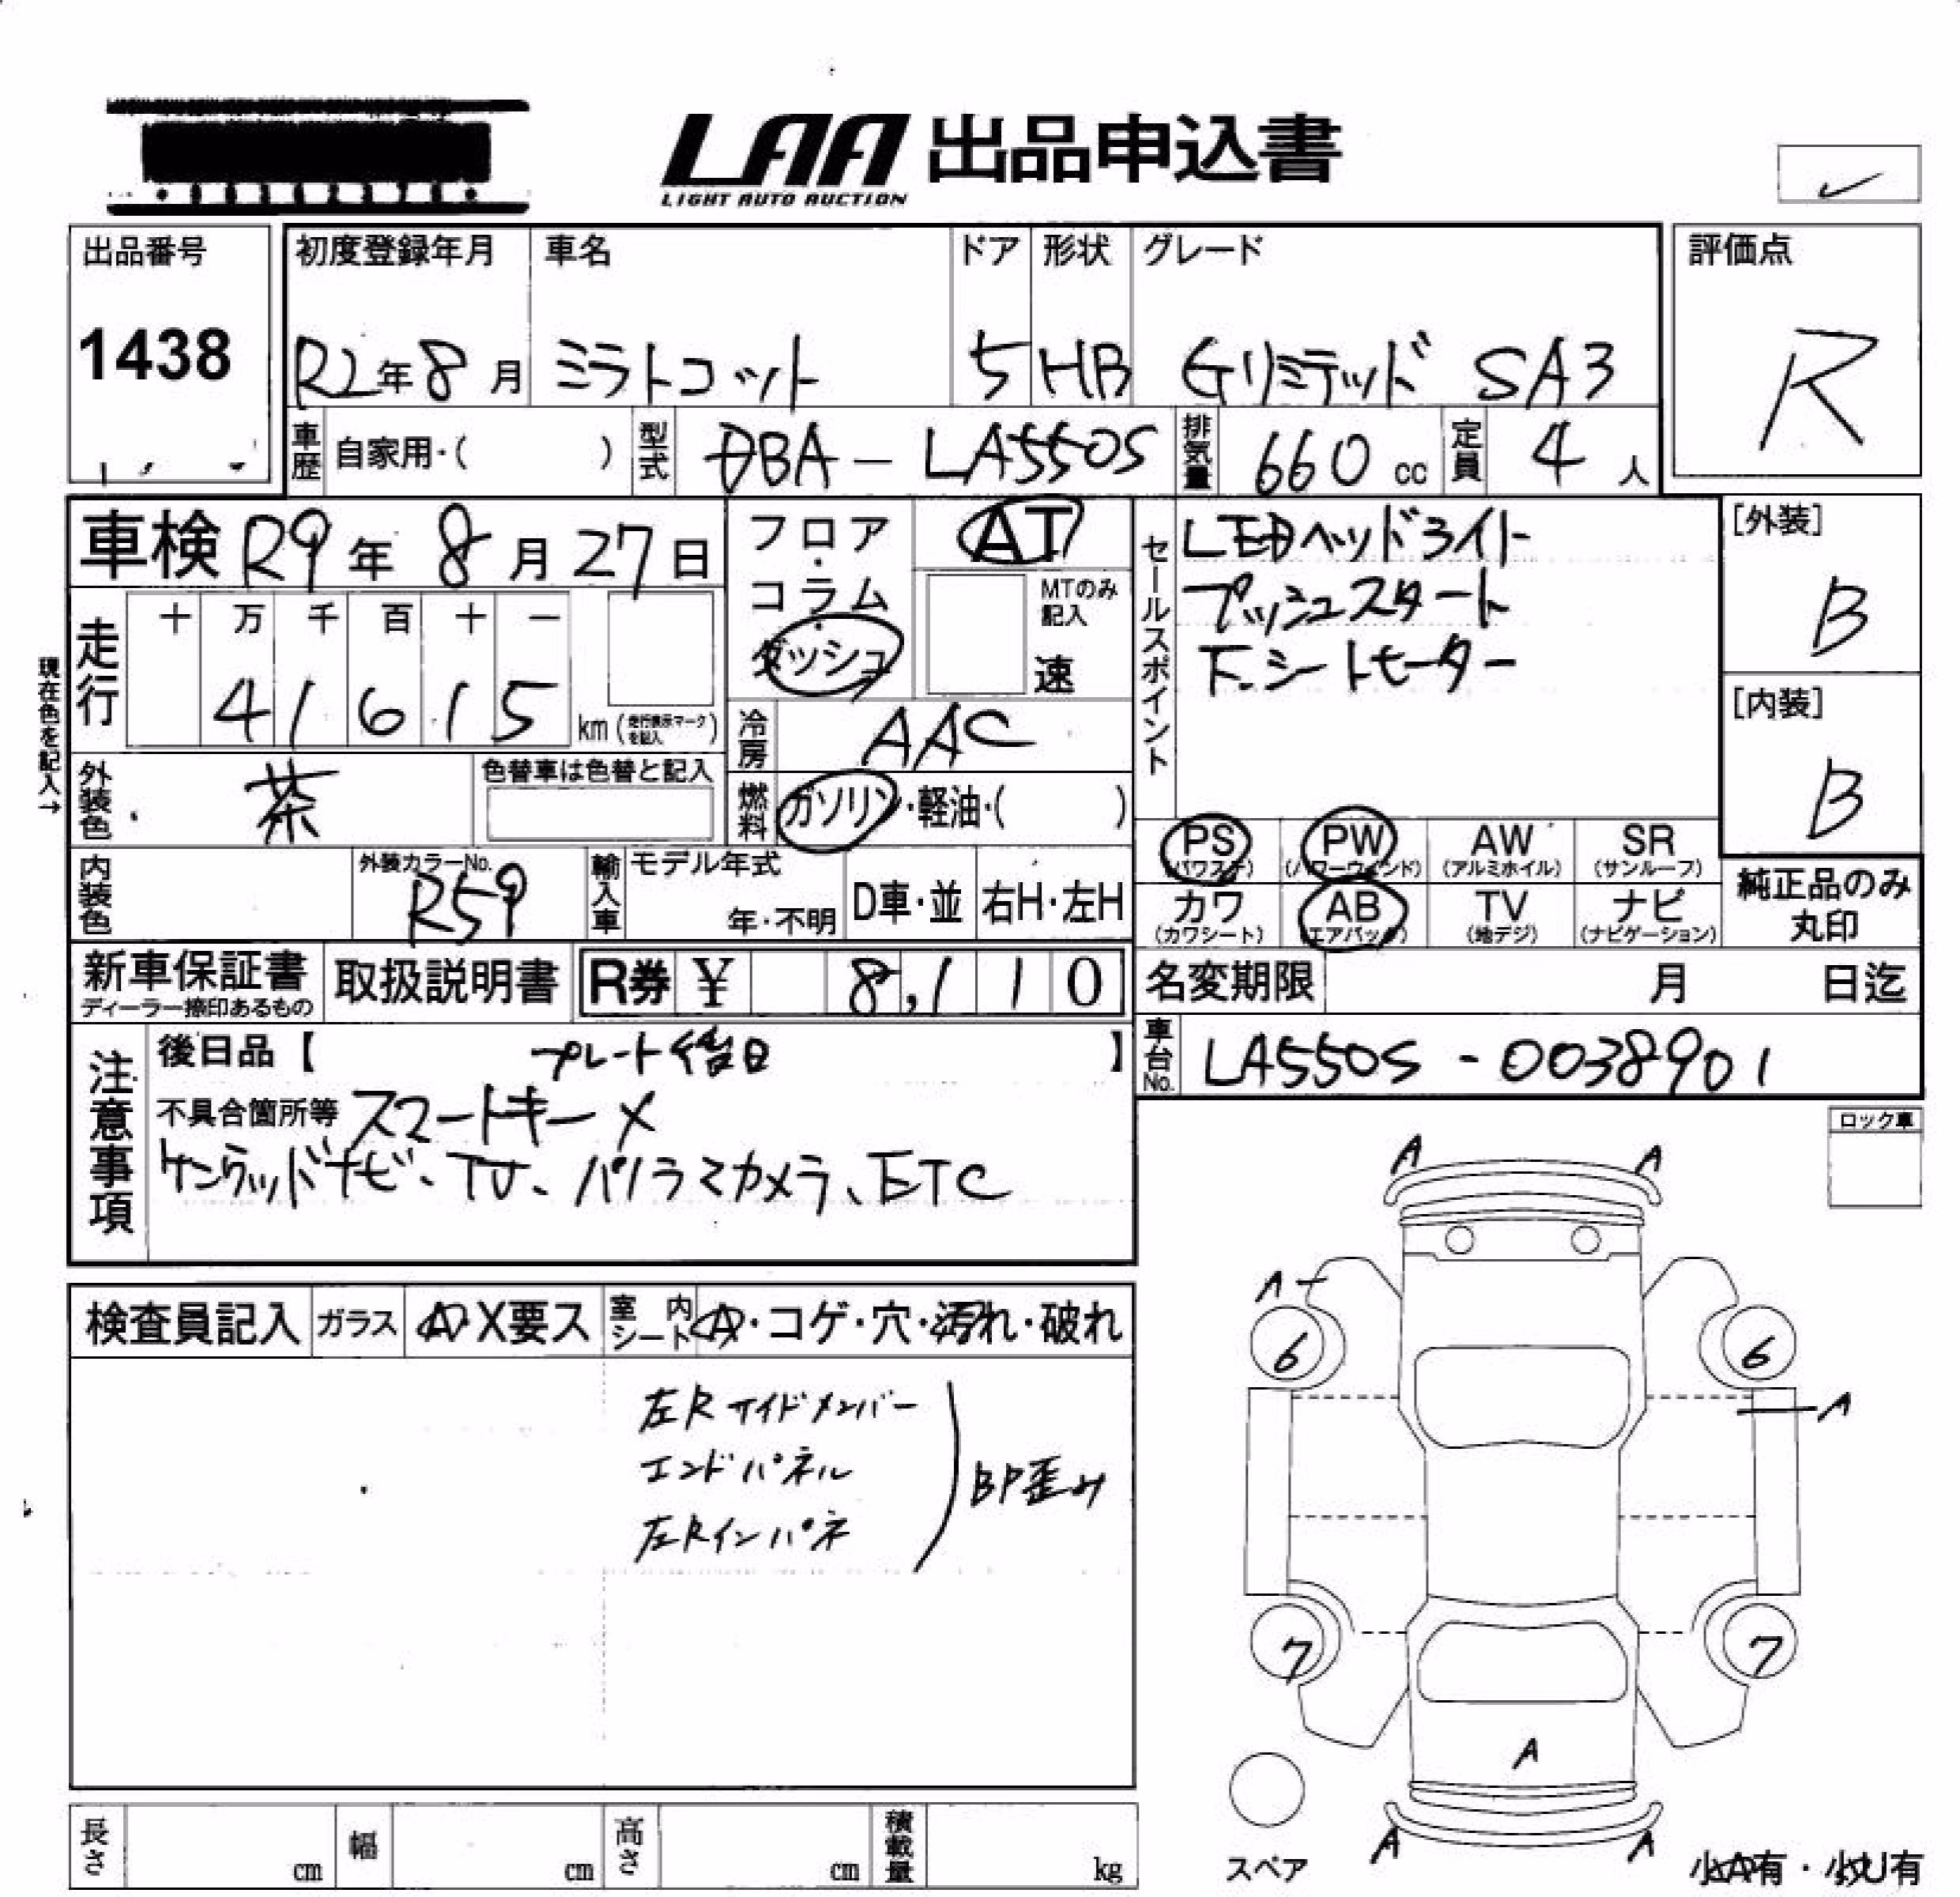 LAA 出品申込書
LIGHT AUTO AUCTION
✓
出品番号
1438
初度登録年月 車名 ドア 形状 グレード
R2年8月 ミラトコット 5 HB Gリミテッド SA3
評価点
R
車歴 自家用・( ) 型式 DBA-LA550S 排気量 660 cc 定員 4 人
車検 R9年 8月 27日
フロア・コラム・ダッシュ
AT
MTのみ記入
速
現在色を記入→
走行 十 万 千 百 十 一
41615 km (走行表示マークを記入)
冷房 AAC
外装色 茶 色替車は色替と記入
燃料 ガソリン・軽油・( )
内装色 外装カラーNo. R59
輸入車 モデル年式 年・不明 D車・並 右H・左H
セールスポイント
LEDヘッドライト
プッシュスタート
下.シートモーター
[外装]
B
[内装]
B
PS (パワステ) PW (パワーウインド) AW (アルミホイル) SR (サンルーフ)
カワ (カワシート) AB (エアバック) TV (地デジ) ナビ (ナビゲーション)
純正品のみ
丸印
新車保証書 ディーラー捺印あるもの 取扱説明書 R券 ¥ 8,110
名変期限 月 日迄
車台No. LA550S-0038901
注意事項
後日品【 プレート後日 】
不具合箇所等 スマートキー×
ケンウッドナビ、TV、パノラマカメラ、ETC
ロック車
検査員記入 ガラス A・X要ス 室内シート A・コゲ・穴・汚れ・破れ
左Rサイドメンバー
エンドパネル
左Rインパネ
BP歪み
A A
A
6 6
A
7 7
A
A A
スペア
小A有・小U有
長さ cm 幅 cm 高さ cm 積載量 kg